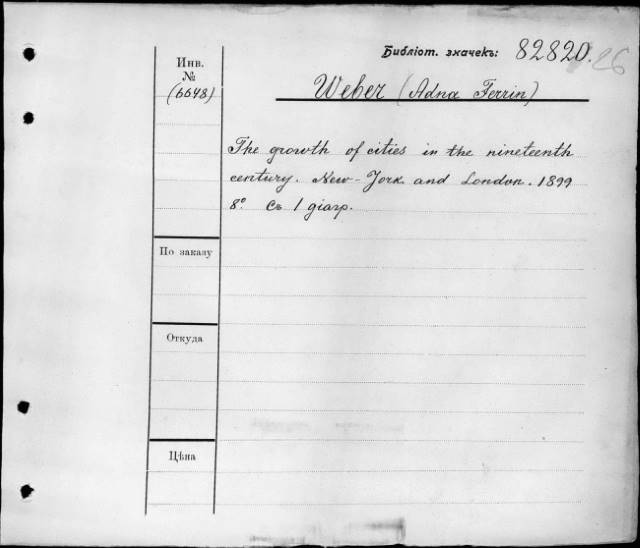 Библіот. значекъ: 82820. 26
Инв.
№
(6648)
Weber (Adna Ferrin)
The growth of cities in the nineteenth
century. New-York and London. 1899
8° Съ 1 діагр.
По заказу
Откуда
Цѣна